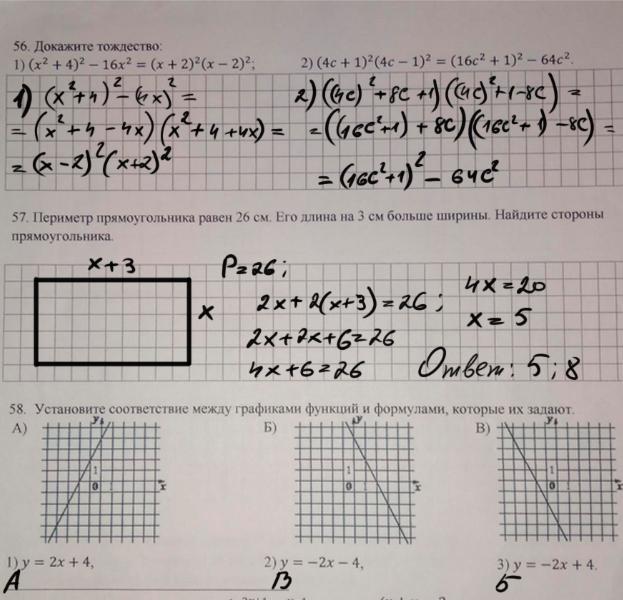 56. Докажите тождество:
1) (x² + 4)² − 16x² = (x + 2)²(x − 2)²; 2) (4c + 1)²(4c − 1)² = (16c² + 1)² − 64c².
1) (x²+4)² − (4x)² =
= (x²+4 − 4x)(x²+4+4x) =
= (x−2)²(x+2)²
2) ((4c)²+8c+1)((4c)²+1−8c) =
= ((16c²+1) + 8c)((16c²+1) − 8c) =
= (16c²+1)² − 64c²
57. Периметр прямоугольника равен 26 см. Его длина на 3 см больше ширины. Найдите стороны
прямоугольника.
x+3
x
P=26;
2x+2(x+3)=26;
2x+2x+6=26
4x+6=26
4x=20
x=5
Ответ: 5; 8
58. Установите соответствие между графиками функций и формулами, которые их задают.
А) Б) В)
y y y
1 1 1
0 x 0 x 0 x
1) y = 2x + 4, 2) y = −2x − 4, 3) y = −2x + 4.
А В Б